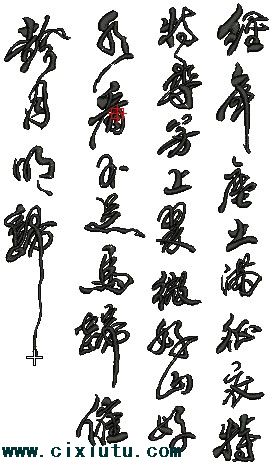 經年塵土滿征衣特
特尋芳上翠微好山好
水看不足馬蹄催
趁月明歸
www.cixiutu.com